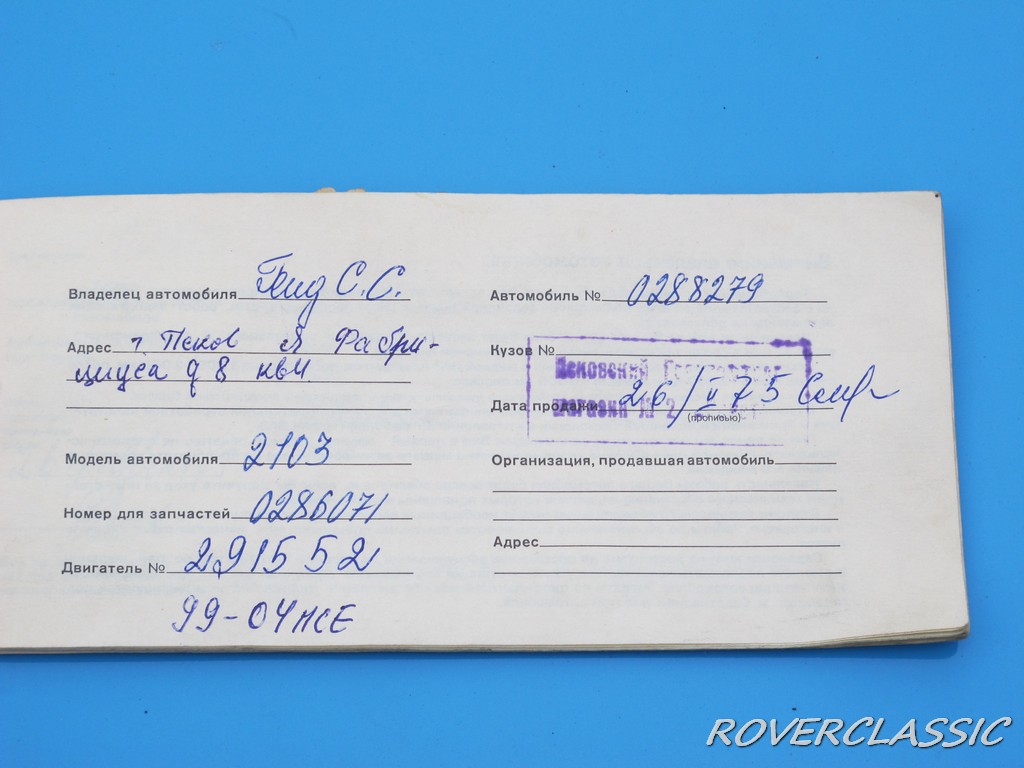 Владелец автомобиля С.С.
Адрес г. Псков Я Фабри-
циуса д 8 кв 11
Модель автомобиля 2103
Номер для запчастей 0286071
Двигатель № 291552
99-04 ПСЕ
Автомобиль № 0288279
Кузов №
Псковский
Дата продажи 26/II 75
Магазин № 2
(прописью)
Организация, продавшая автомобиль
Адрес
ROVERCLASSIC